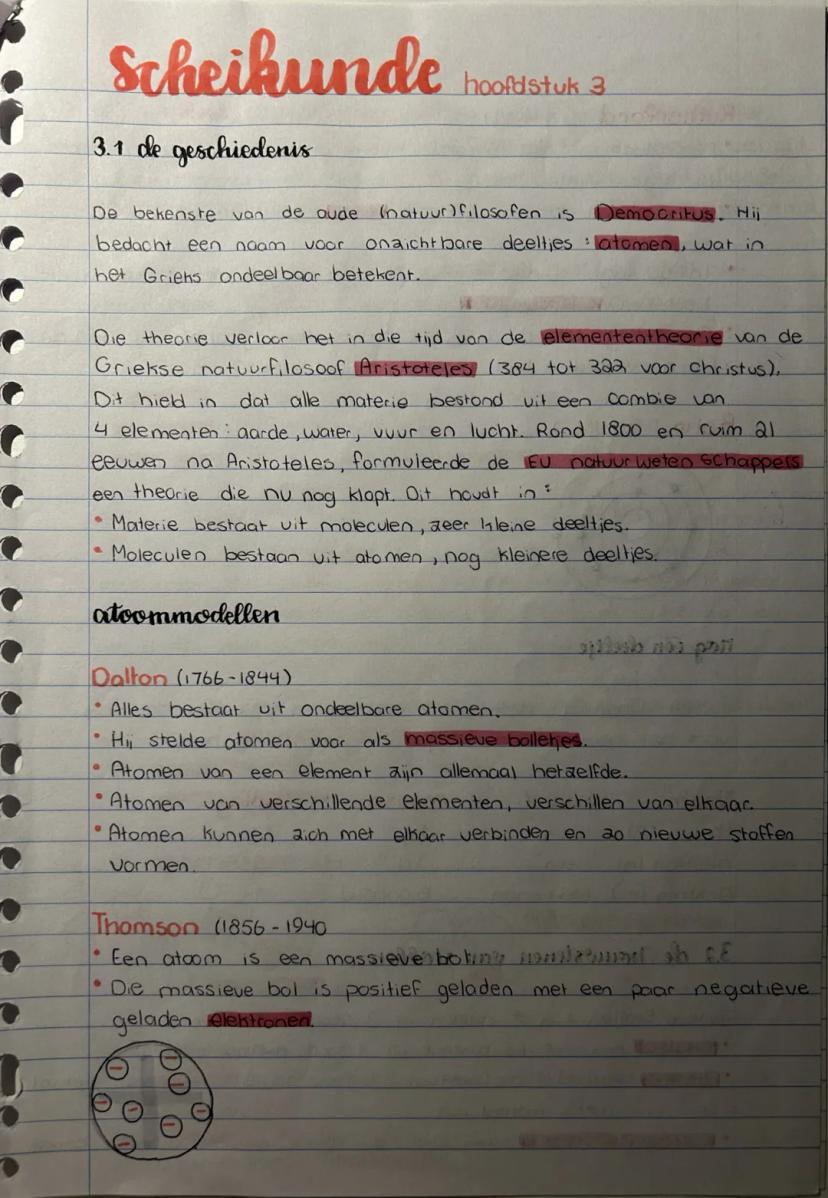 Scheikunde hoofdstuk 3
3.1 de geschiedenis
De bekenste van de oude (natuur)filosofen is Democritus. Hij
bedacht een naam voor onzichtbare deeltjes : atomen, wat in
het Grieks ondeelbaar betekent.
Die theorie verloor het in die tijd van de elemententheorie van de
Griekse natuurfilosoof Aristoteles (384 tot 322 voor christus).
Dit hield in dat alle materie bestond uit een combie van
4 elementen: aarde, water, vuur en lucht. Rond 1800 en ruim 21
eeuwen na Aristoteles, formuleerde de EU natuurwetenschappers
een theorie die nu nog klopt. Dit houdt in :
• Materie bestaat uit moleculen, zeer kleine deeltjes.
• Moleculen bestaan uit atomen, nog kleinere deeltjes.
atoommodellen
Dalton (1766-1844)
• Alles bestaat uit ondeelbare atomen.
• Hij stelde atomen voor als massieve bolletjes.
• Atomen van een element zijn allemaal hetzelfde.
• Atomen van verschillende elementen, verschillen van elkaar.
• Atomen kunnen zich met elkaar verbinden en zo nieuwe stoffen
vormen.
Thomson (1856 - 1940
• Een atoom is een massieve bol
• Die massieve bol is positief geladen met een paar negatieve
geladen elektronen.